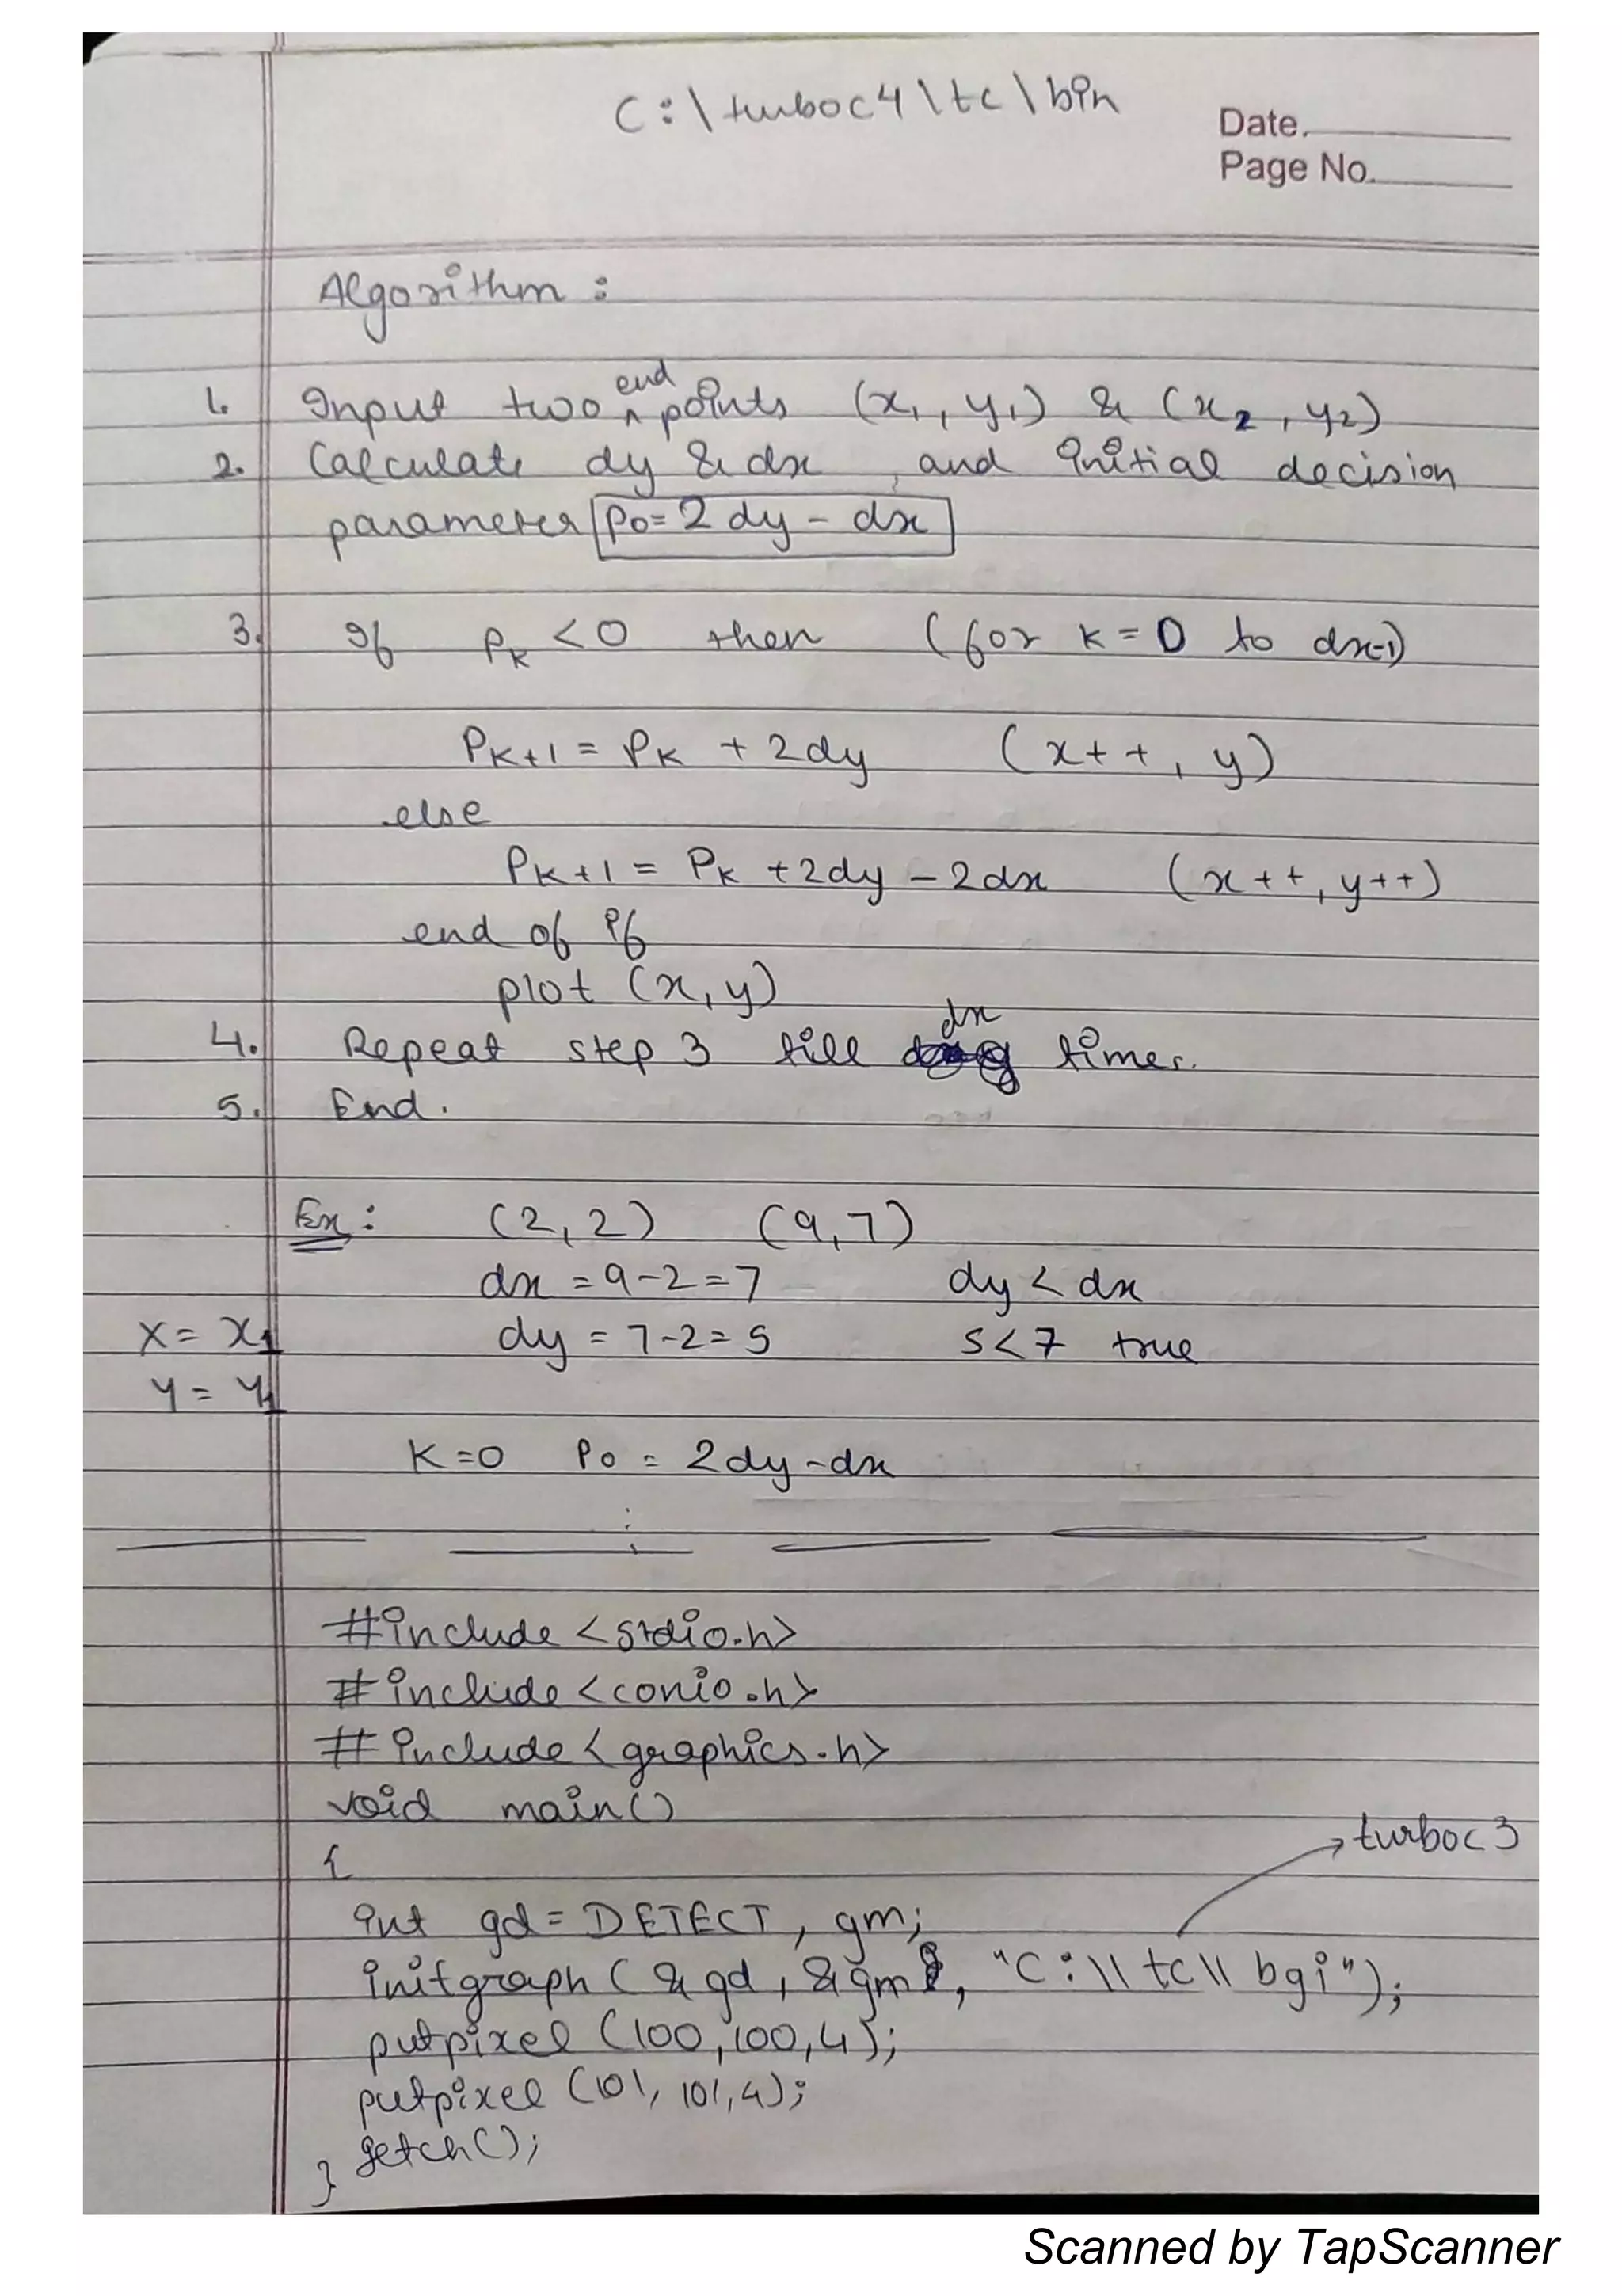 C:\turboc4\tc\bin
Date.
Page No.
Algorithm :
1. Input two end points (x1, y1) & (x2, y2)
2. Calculate dy & dx, and initial decision
parameter P0 = 2 dy - dx
3. If Pk < 0 then (for k = 0 to dx-1)
Pk+1 = Pk + 2dy (x++, y)
else
Pk+1 = Pk + 2dy - 2dx (x++, y++)
end of if
plot (x, y)
4. Repeat step 3 till dx times.
5. End.
Ex: (2, 2) (9, 7)
dx = 9-2 = 7 dy < dx
x = x1 dy = 7-2 = 5 5<7 true
y = y1
K=0 P0 = 2dy-dx
#include <stdio.h>
#include <conio.h>
#include <graphics.h>
void main()
{
turboc3
int gd = DETECT, gm;
initgraph (&gd, &gm, "C:\\tc\\bgi");
putpixel (100, 100, 4);
putpixel (101, 101, 4);
getch();
}
Scanned by TapScanner